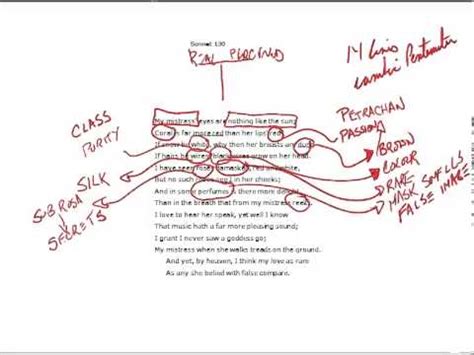 Sonnet 130
REAL
14 lines
Iambic Pentameter
My mistress' eyes are nothing like the sun;
Coral is far more red than her lips' red;
If snow be white, why then her breasts are dun;
If hairs be wires, black wires grow on her head.
I have seen roses damasked, red and white,
But no such roses see I in her cheeks;
And in some perfumes is there more delight
Than in the breath that from my mistress reeks.
I love to hear her speak, yet well I know
That music hath a far more pleasing sound;
I grant I never saw a goddess go;
My mistress when she walks treads on the ground.
And yet, by heaven, I think my love as rare
As any she belied with false compare.
CLASS
PURITY
SILK
SUB ROSA
SECRETS
PETRACHAN
PASSION
BROWN
COLOR
RARE
MASK SMELLS
FALSE IMAGE